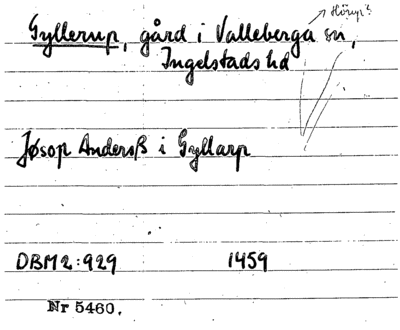 Hörup?
Gyllerup, gård i Valleberga sn,
Ingelstads hd
Jøsop Anderß i Gyllarp
DBM2:929 1459
Nr 5460.